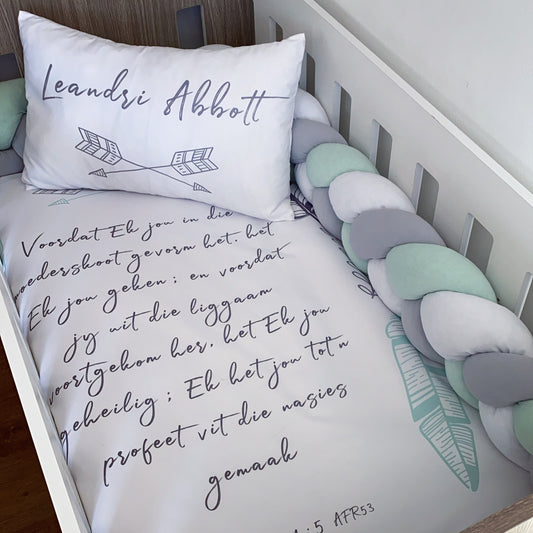 Leandri Abbott
Voordat Ek jou in die
moedershoot gevorm het, het
Ek jou geken; en voordat
jy uit die liggaam
voortgekom her, het Ek jou
geheilig; Ek het jou tot 'n
profeet vit die nasies
gemaak
:5 AFR53